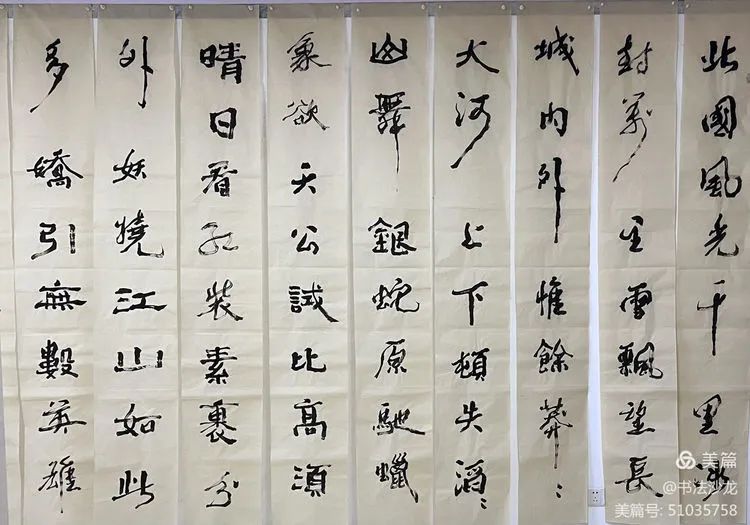 北國風光千里冰
封萬里雪飄望長
城內外惟餘莽〻
大河上下頓失滔〻
山舞銀蛇原馳蠟
象欲天公試比高須
晴日看紅裝素裹分
外妖嬈江山如此
多嬌引無數英雄
美篇
@书法沙龙
美篇号: 51035758